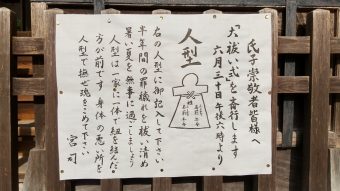 氏子崇敬者皆様へ
「大祓い式」を斎行します
六月三十日午後六時より
人型
右の人型に御記入して下さい
半年間の罪穢れを祓い清め
暑い夏を無事に過ごしましょう
人型は一家に一体で紐を結んだ
方が前です 身体の悪い所を
人型で撫で
下さい
宮司